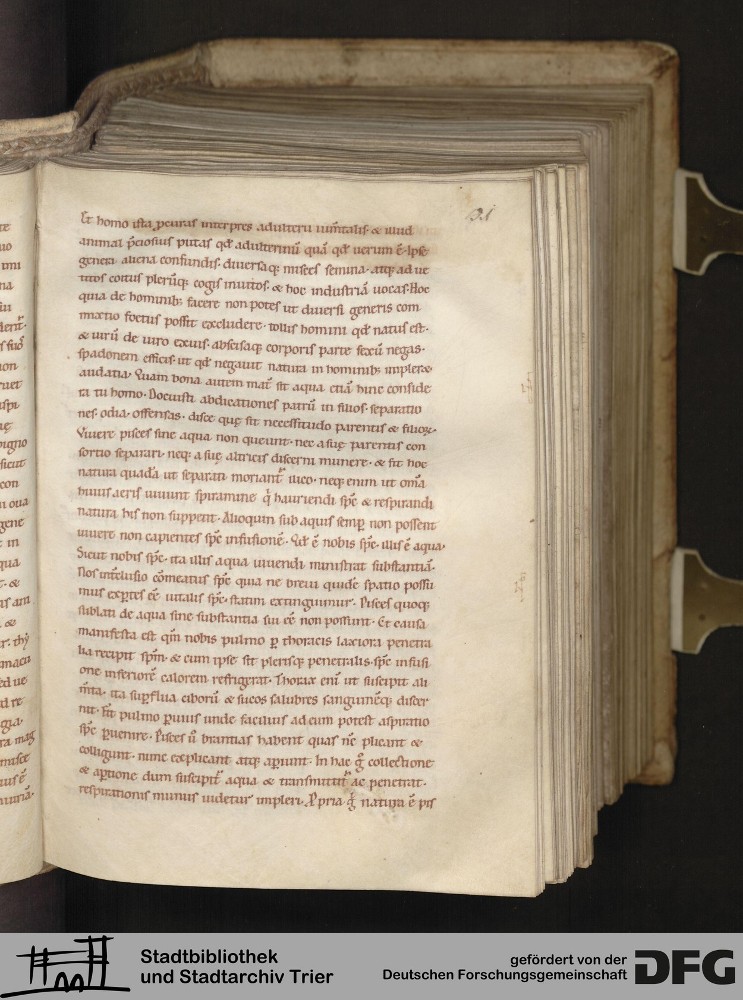 91
Et homo ista ꝓcuras interpres adulterii iumtalis. & illud
animal p̄ciosius putas qđ adulterinū quā qđ uerum ē. Ipse
genera aliena confundis. diuersaq; misces semina. atq; ad ue
titos coitus plerūq; cogis inuitos. & hoc industriā uocas. Hoc
quia de hominib; facere non potes ut diuersi generis com
mixtio foetus possit excludere. tollis homini qđ natus est.
& uirū de uiro exuis. abscisaq; corporis parte sexū negas.
spadonem efficis. ut qđ negauit natura in hominib; impleret
audatia. Quam bona autem mat̄ sit aqua etiā hinc conside
ra tu homo. Docuisti abdicationes patrū in filios. separatio
nes. odia. offensas. disce quę sit necessitudo parentis & filioꝝ.
Viuere pisces sine aqua non queunt. nec a suę parentis con
sortio separari. neq; a suę altricis discerni munere. & fit hoc
natura quadā ut separati moriant̄ ilico. neq; enim ut om̄a
huius aeris uiuunt spiramine q̄ hauriendi sp̄c & respirandi
natura his non suppetit. Alioquin sub aquis semp̱ non possent
uiuere non capientes sp̄c infusionē. Qđ ē nobis sp̄c. illis ē aqua.
Sicut nobis sp̄c. ita illis aqua uiuendi ministrat substantiā.
Nos int̄clusio cōmeatus sp̄c quia ne breui quidē spatio possu
mus exp̱tes eē uitalis sp̄c. statim extinguimur. Pisces quoq;
sublati de aqua sine substantia sui eē non possunt. Et causa
manifesta est qm̄ nobis pulmo p̱ thoracis laxiora penetra
lia recipit sp̄m. & cum ipse sit plerisq; penetralis. sp̄c infusi
one inferiorē calorem refrigerat. Thorax eni ut suscipit ali
m̄ta. ita sup̱flua ciborū & sucos salubres sanguinēq; discer
nit. Fit pulmo p̱uius unde facilius ad eum potest aspiratio
sp̄c p̱uenire. Pisces ū brantias habent quas nc̄ plicant &
colligunt. nunc explicant atq; ap̱iunt. In hac g̊ collectione
& ap̱tione dum suscipit̄ aqua & transmittit̄ ac penetrat.
respirationis munus uidetur impleri. Ꝓpria g̊ natura ē pis
Stadtbibliothek
und Stadtarchiv Trier
gefördert von der
Deutschen Forschungsgemeinschaft
DFG